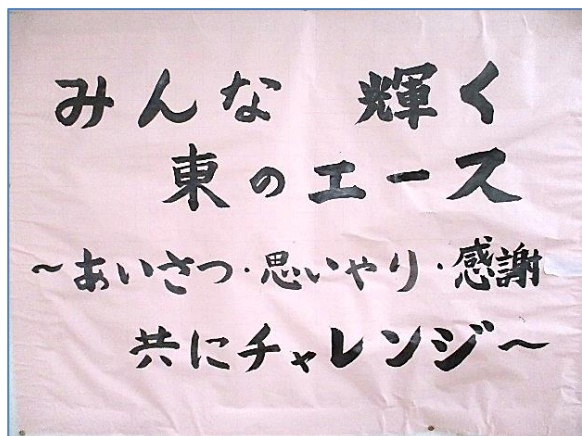 みんな 輝く
東のエース
～あいさつ・思いやり・感謝
共にチャレンジ～